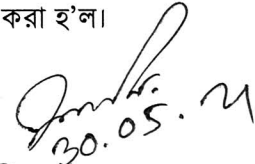 করা হ'ল।
30.05.21